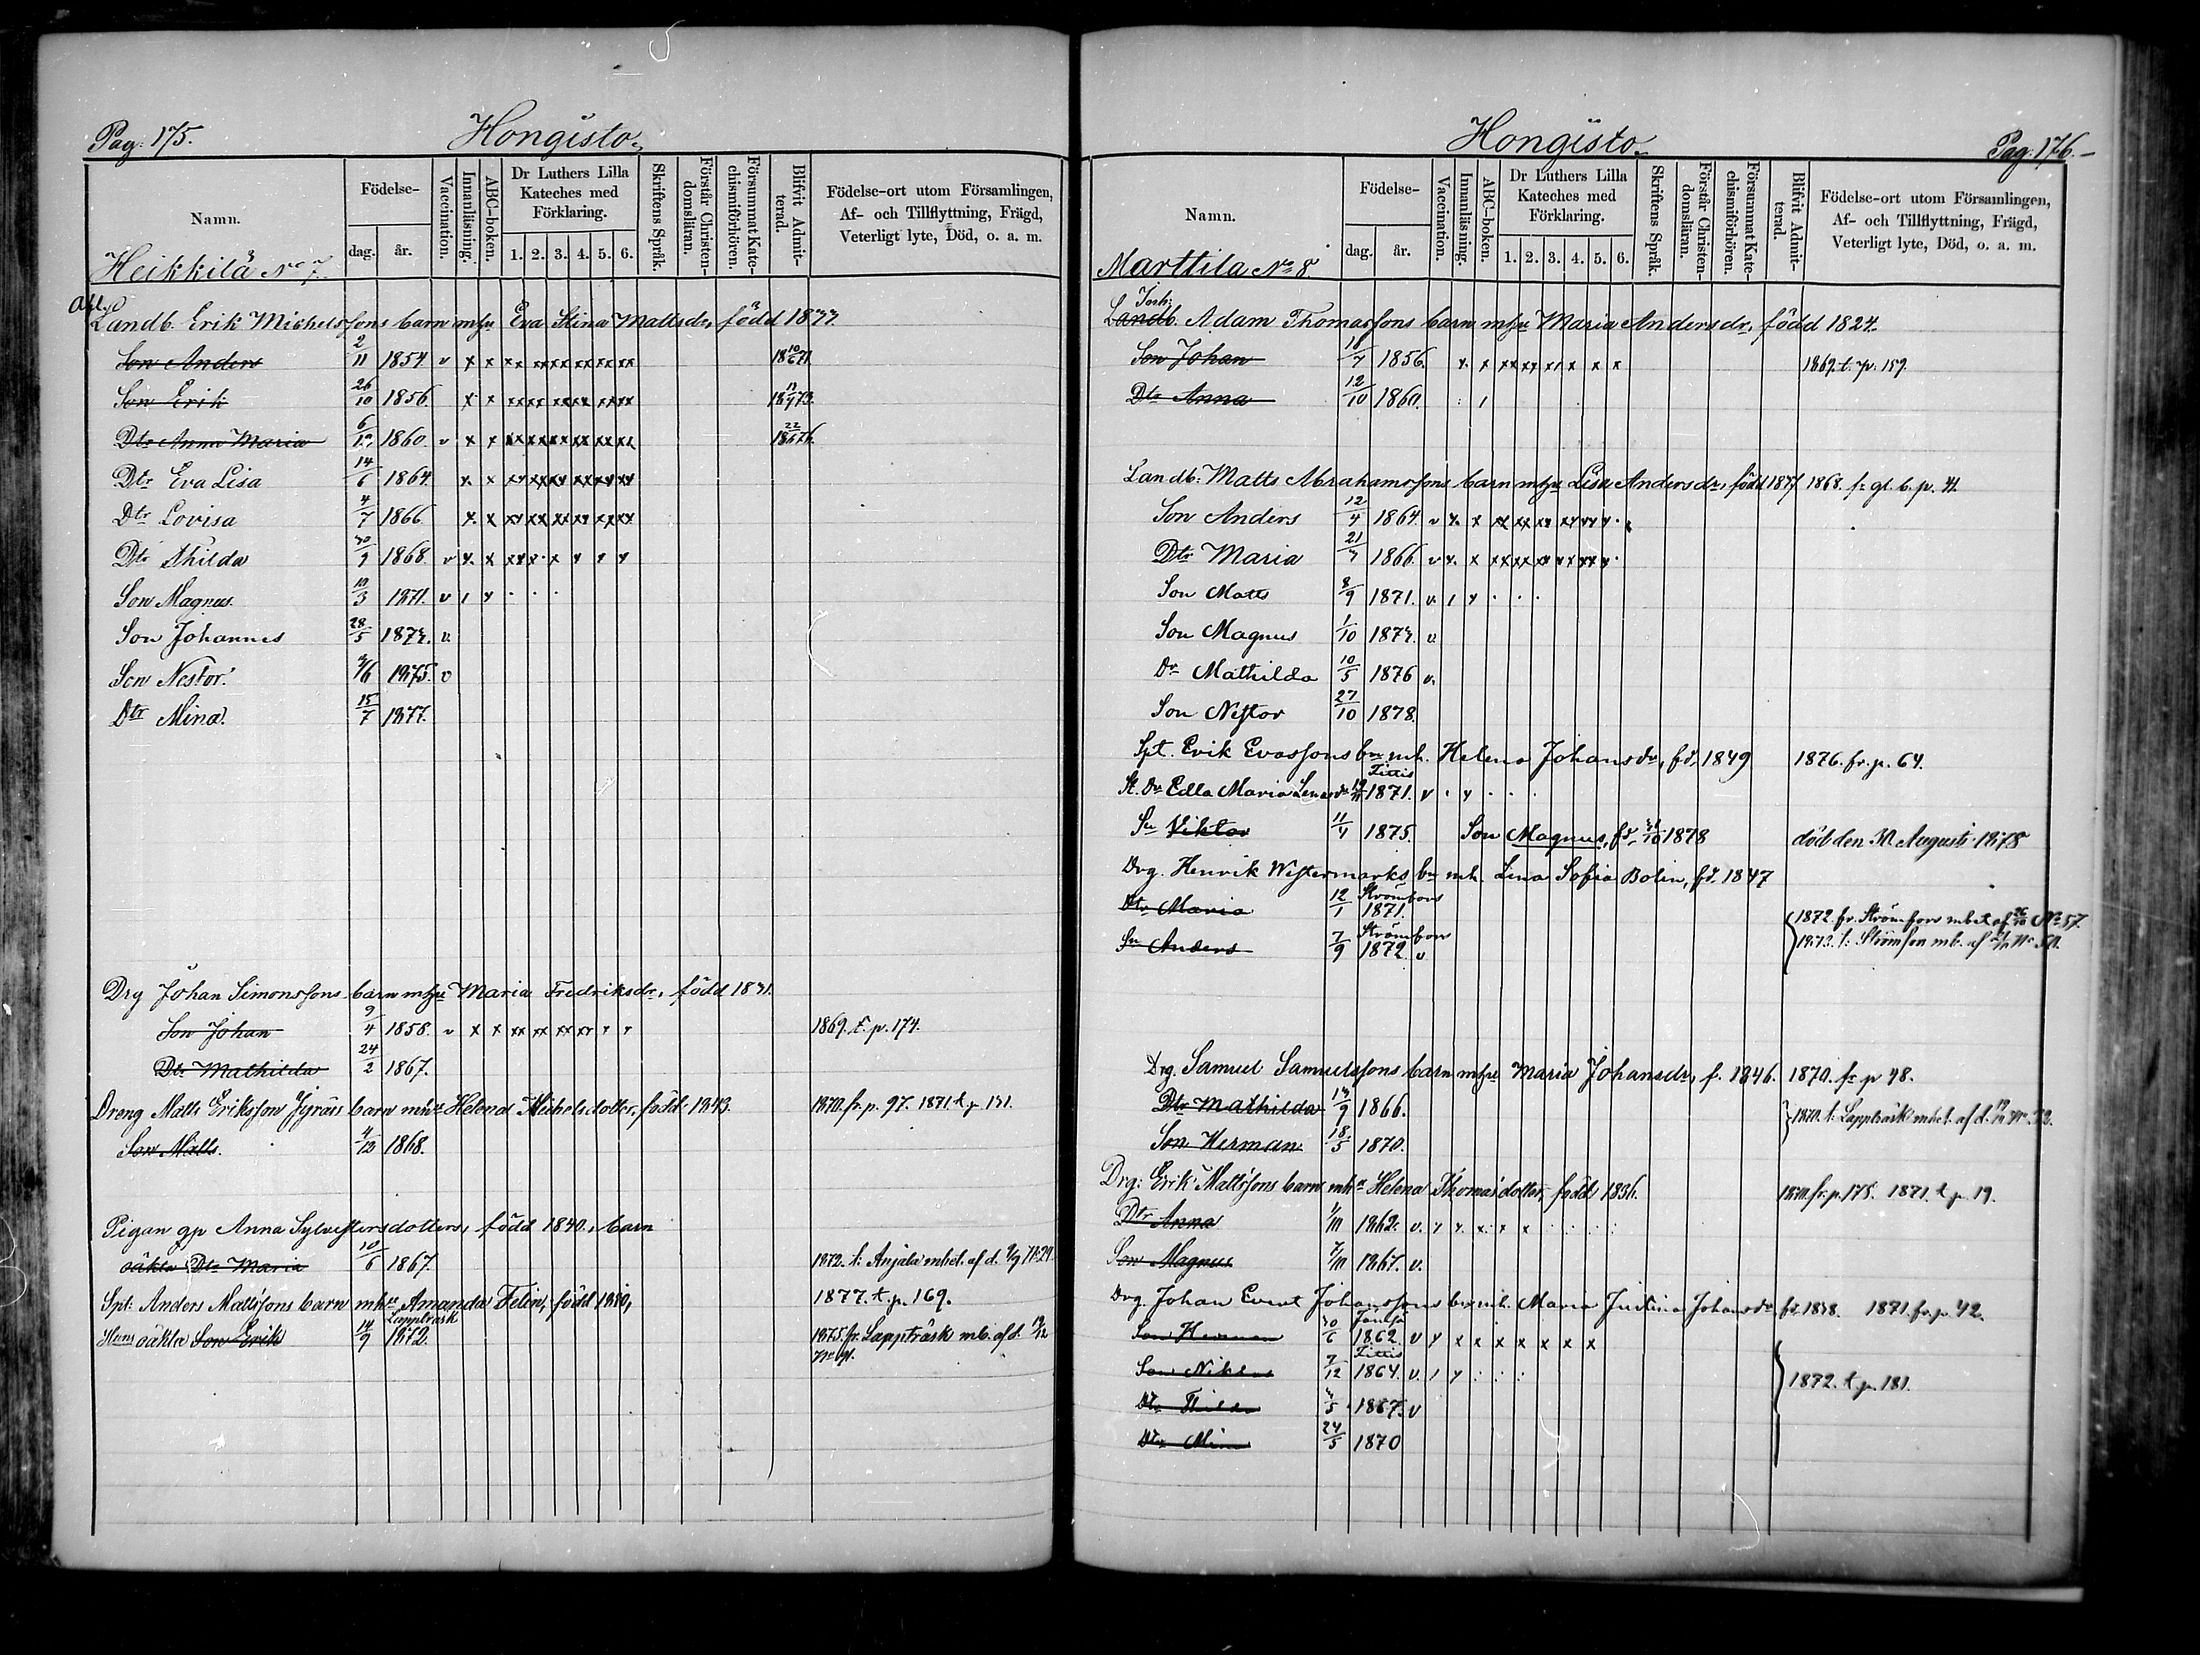 Pag. 175.
Hongisto.
Namn.
Födelse-
dag.
år.
Vaccination.
Innanläsning.
ABC-boken.
Dr Luthers Lilla Kateches med Förklaring.
1. 2. 3. 4. 5. 6.
Skriftens Språk.
Förstår Christendomsläran.
Försummat Katechismiförhören.
Blifvit Admitterad.
Födelse-ort utom Församlingen, Af- och Tillflyttning, Frägd, Veterligt lyte, Död, o. a. m.
Heikkilä No 7.
Landb. Erik Michelssons barn mhu Eva Stina Mattsdr, född
Son Anders 2/11 1854. v x x
Son Erik 26/10 1856. x x
Dtr Anna Maria 1860. v x x
Dtr Eva Lisa 14/6 1864. x x
Dtr Lovisa 4/7 1866. x x
Dtr Thilda 30/9 1868. v x x
Son Magnus 10/3 1871. v
Son Johannes 28/5 v.
Son Nestor. 1875. v
Dtr Mina. 15/7 1877.
Drg Johan Simonssons barn mhu Maria Fredriksdr, född
Son Johan 9/4 1858. v x x 1869. t. p. 174.
Dtr Mathilda 24/2 1867.
Dreng Matts Eriksson Jyräs barn mhu Helena Michelsdotter, född 1843. 1870. fr. p. 97. 1871. t. p. 131.
Son Matts. 1868.
Pigan gp Anna Sylvestersdotters, född 1840, barn
oäkta Dtr Maria 10/6 1867. 1872. t. Anjala mbet. af d.
Spt. Anders Mattssons barn mhu Amanda Felin, född 1850, 1877. t. p. 169.
Lappträsk
Hans oäkta Son Erik 14/9 1872. 1875. fr. Lappträsk mb. af d.
Hongisto.
Pag. 176.
Namn.
Födelse-
dag.
år.
Vaccination.
Innanläsning.
ABC-boken.
Dr Luthers Lilla Kateches med Förklaring.
1. 2. 3. 4. 5. 6.
Skriftens Språk.
Förstår Christendomsläran.
Försummat Katechismiförhören.
Blifvit Admitterad.
Födelse-ort utom Församlingen, Af- och Tillflyttning, Frägd, Veterligt lyte, Död, o. a. m.
Marttila No 8.
Landb. Adam Thomassons barn mhu Maria Andersdr, född 1824.
Son Johan 1856. 1869. t. p. 159.
Dtr Anna 12/10 1860.
Landb. Matts Abrahamssons barn mhu Lisa Andersdr, född 1868. fr gl. b. p.
Son Anders 12/4 1864. v x x
Dtr Maria 21/7 1866. v x x
Son Matts 8/9 1871. v.
Son Magnus 1/10 v
Dr Mathilda 10/5 1876 v.
Son Nestor 27/10 1878.
Spt. Erik Evassons bn mh. Helena Johansdr, fd. 1849 1876. fr. p. 64.
Fittis
Dr Edla Maria 1871. v
Sn Viktor 1875. Son Magnus, fd. 1878 död den Augusti 1878
Drg. Henrik Westermarks bn mh. Lina Sofia Bolin, fd. 1847
Dtr Maria 12/1 Strömfors 1871.
1872. fr. Strömfors mbet af No 57.
Sn Anders 7/9 Strömfors 1872. v
1873. t. Strömfors mb. af
Drg. Samuel Samuelssons barn mhu Maria Johansdr, f. 1846. 1870. fr p 48.
Dtr Mathilda 1866.
1870. t. Lappträsk mbet. af d.
Son Herman 18/5 1870.
Drg: Erik Mattssons barn mhu Helena Thomasdotter, född 1836. 1870. fr. p. 175. 1871. t. p. 19.
Dtr Anna 1862. v.
Son Magnus 1867. v.
Drg. Johan Evert Johanssons bn mh. Maria Justina Johansdr, fd. 1838. 1871. fr. p. 42.
Son Herman 30/6 1862. v
Fittis
Son Niklas 7/12 1864. v.
1872. t. p. 181.
Dtr Thilda 1867. v
Dtr Mina 24/5 1870